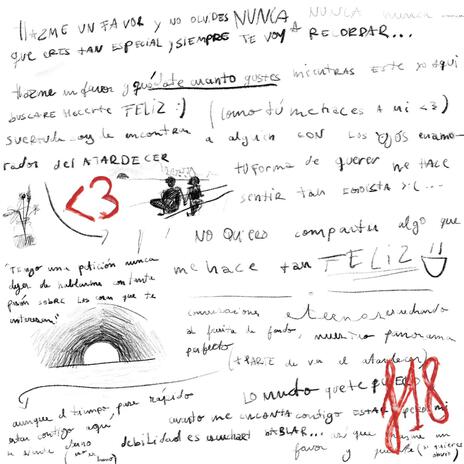 HAZME UN FAVOR y NO OLVIDES NUNCA NUNCA nunca
que ERES TAN ESPECIAL y SIEMPRE TE VOY A RECORDAR...
Hazme un favor y quédate cuanto gustes mientras esté yo aquí
buscaré hacerte FELIZ :) (como tú me haces a mi <3)
suertuda soy de encontrar a alguien CON LOS OJOS enamo-
rados del ATARDECER
tu forma de querer me HACE
sentir tan EGOISTA :( ...
<3
NO QUIERO compartir algo que
me hace tan FELIZ
"Tengo una petición nunca
dejes de hablarme con tanta
pasión sobre las cosas que te
interesan"
conversaciones eternas
al fondo, nuestro panorama
perfecto
(+ PARTE de ver el atardecer)
LO MUCHO que te
aunque el tiempo pase rápido
estar contigo aquí
se siente eterno
cuanto me ENCANTA contigo ESTAR pero mi
debilidad es escuchart HABLAR... así que hazme un
favor y
(si quieres
obvio)